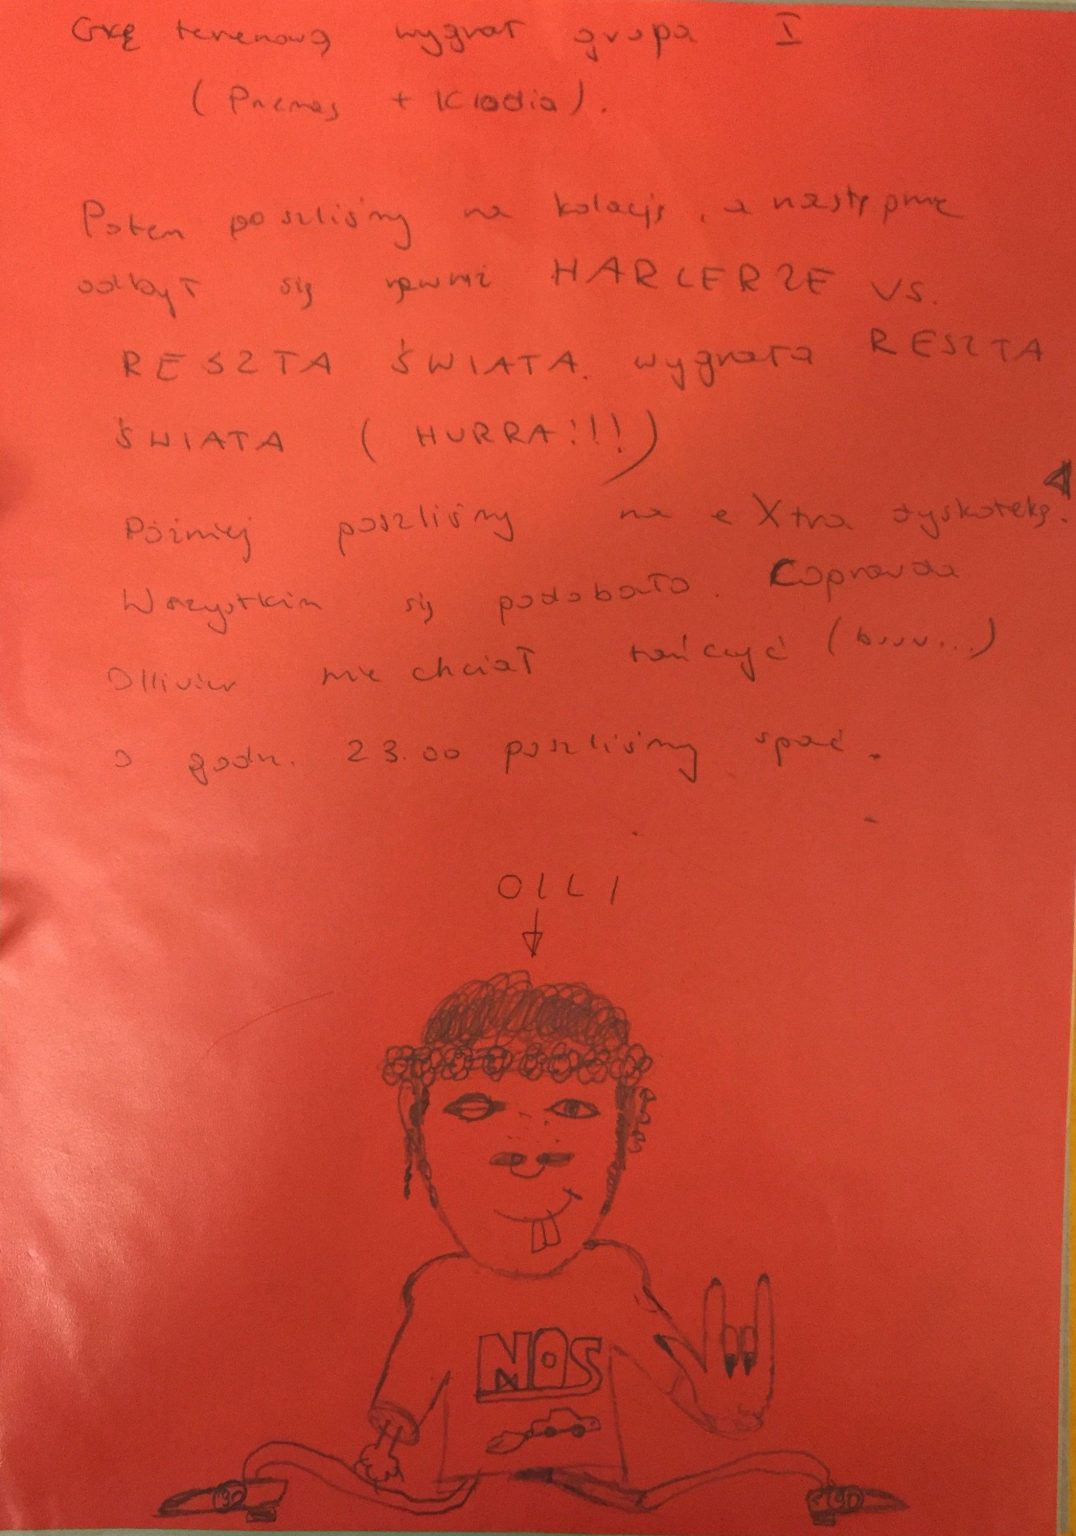 Grę terenową wygrał grupa I
(Przemas + Klodia).
Potem poszliśmy na kolację, a następnie
odbył się również HARCERZE VS.
RESZTA ŚWIATA. wygrała RESZTA
ŚWIATA (HURRA!!!)
Później poszliśmy na eXtra dyskotekę.
Wszystkim się podobało. Coprawda
Ollivier nie chciał tańczyć (buuu...)
o godz. 23.00 poszliśmy spać.
OLLI
NOS